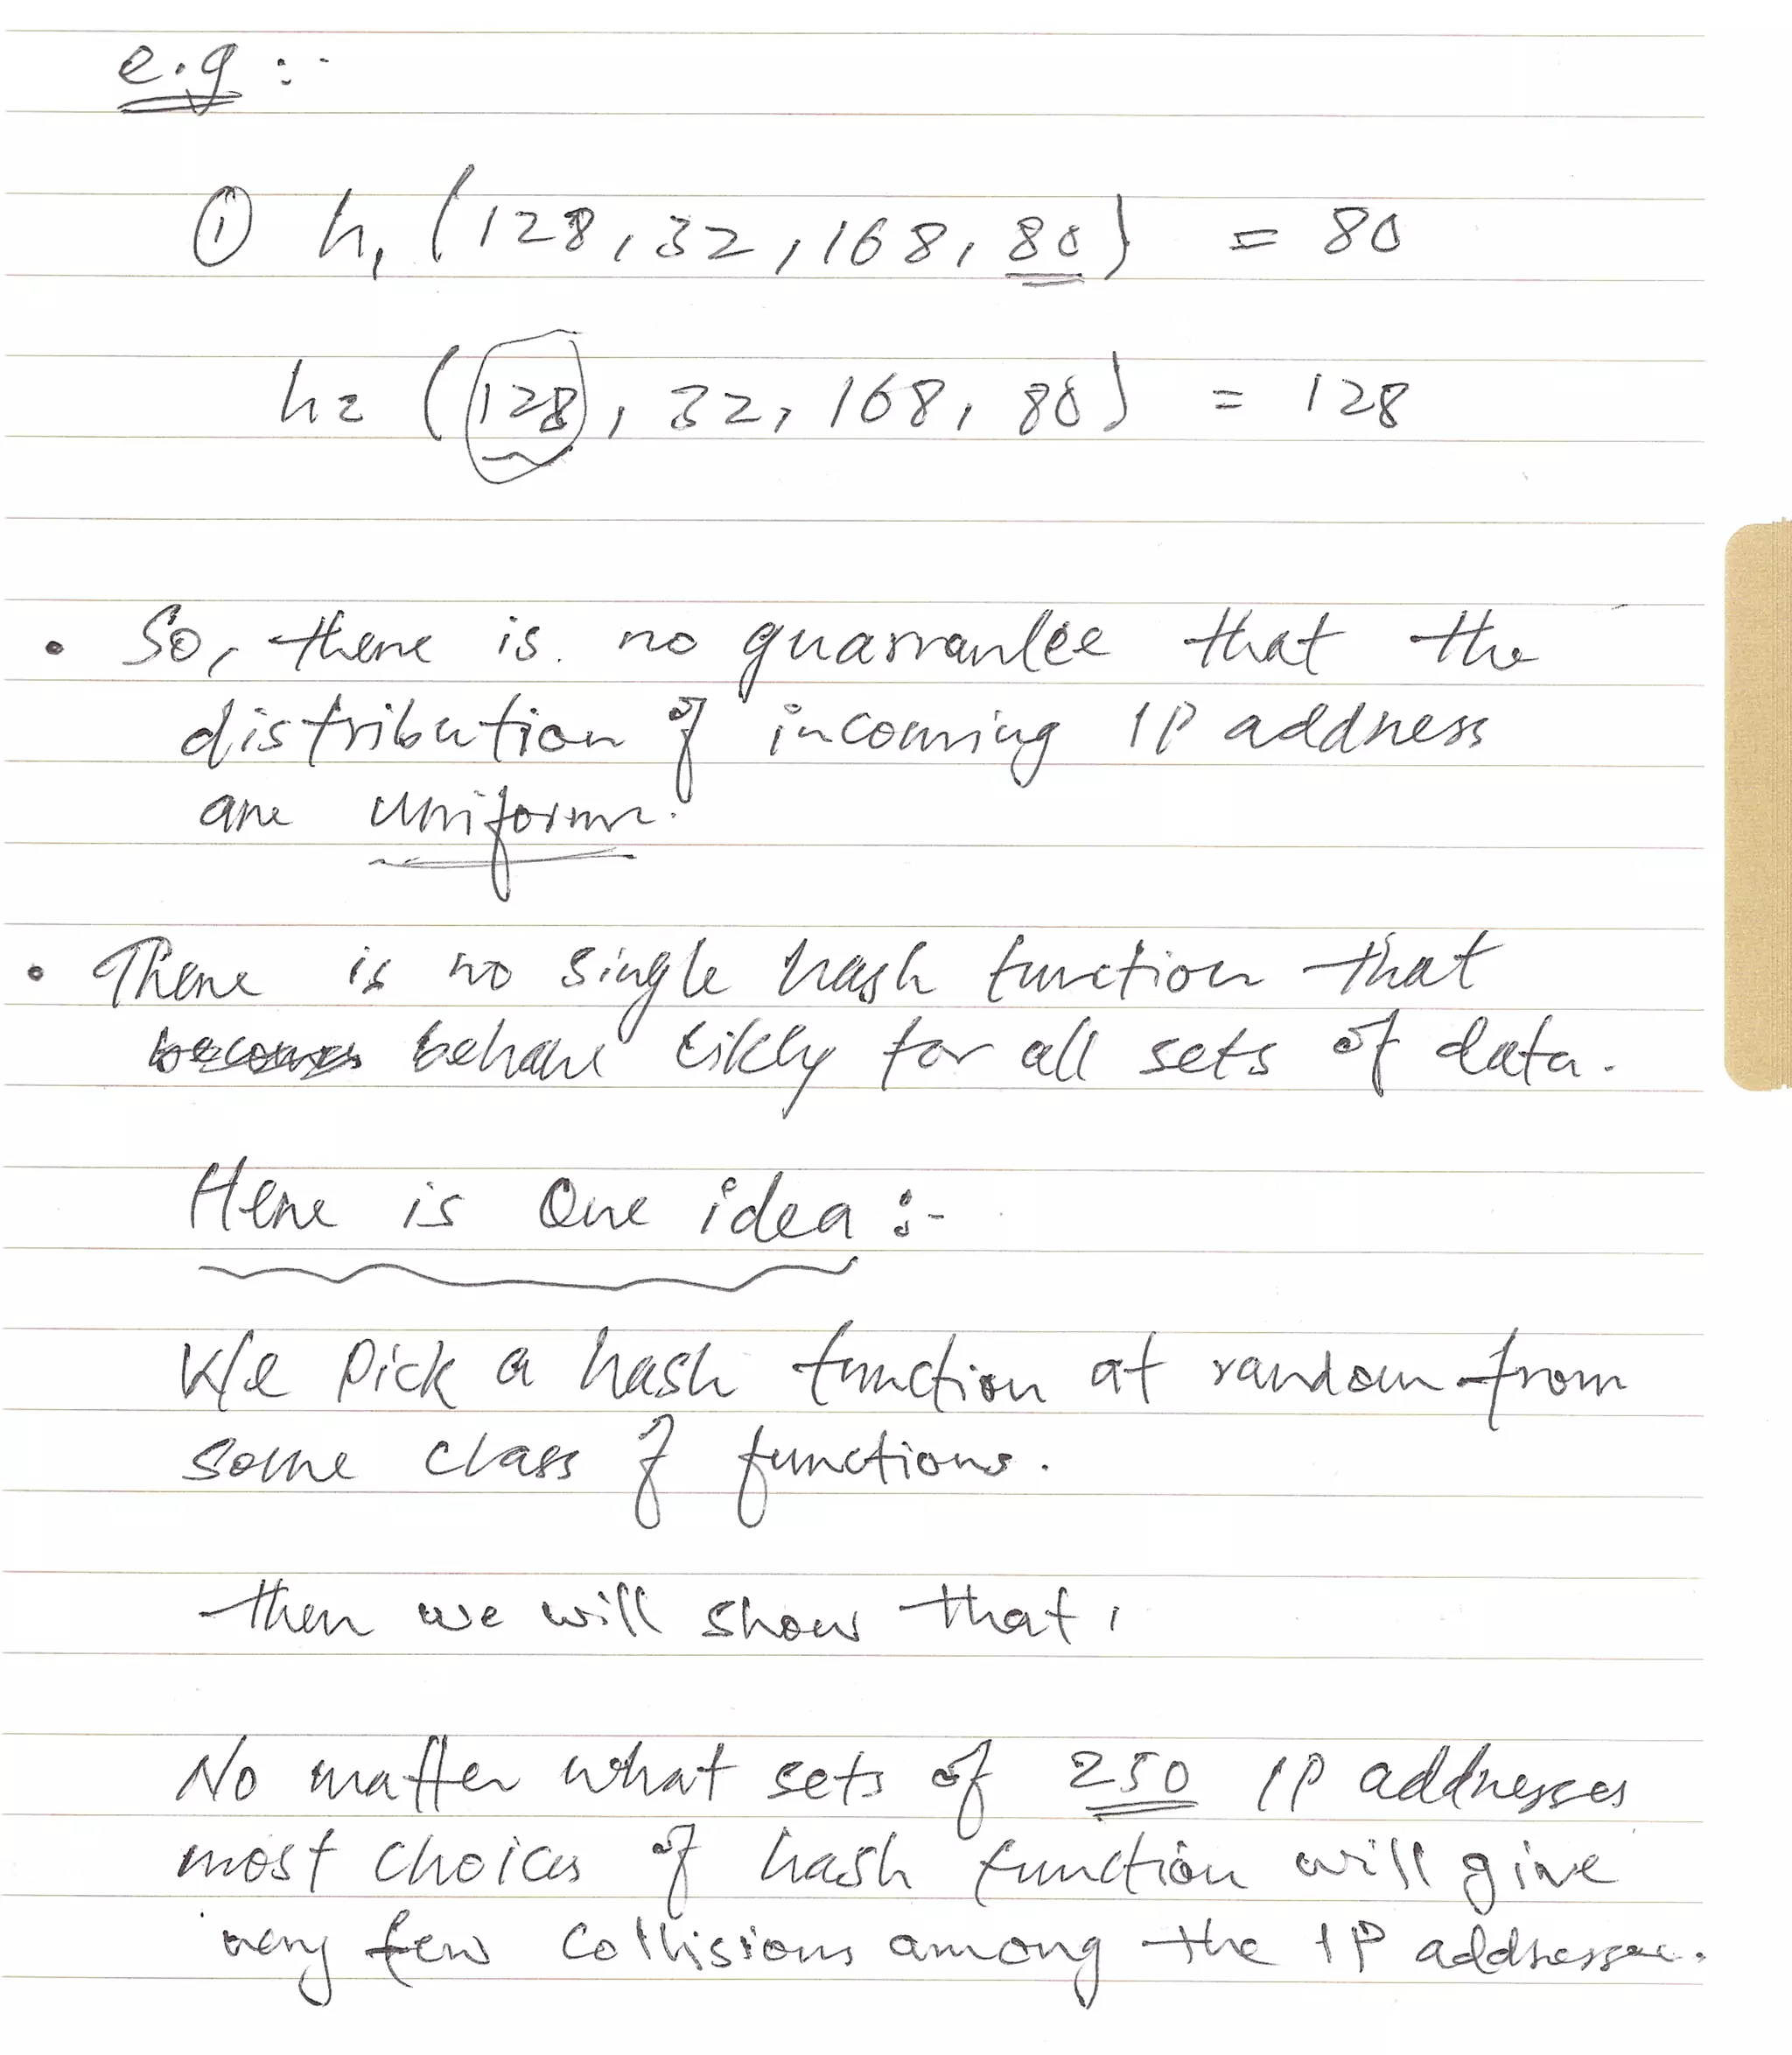 e.g :-
① h1 (128, 32, 168, 80) = 80
h2 (128, 32, 168, 80) = 128
• So, there is no guarrantee that the
distribution of incoming IP address
are uniform.
• There is no single hash function that
becomes behave likly for all sets of data.
Here is One idea :-
We Pick a hash function at random from
some class of functions.
then we will show that,
No matter what sets of 250 IP addresses
most choices of hash function will give
very few collisions among the IP addresses.